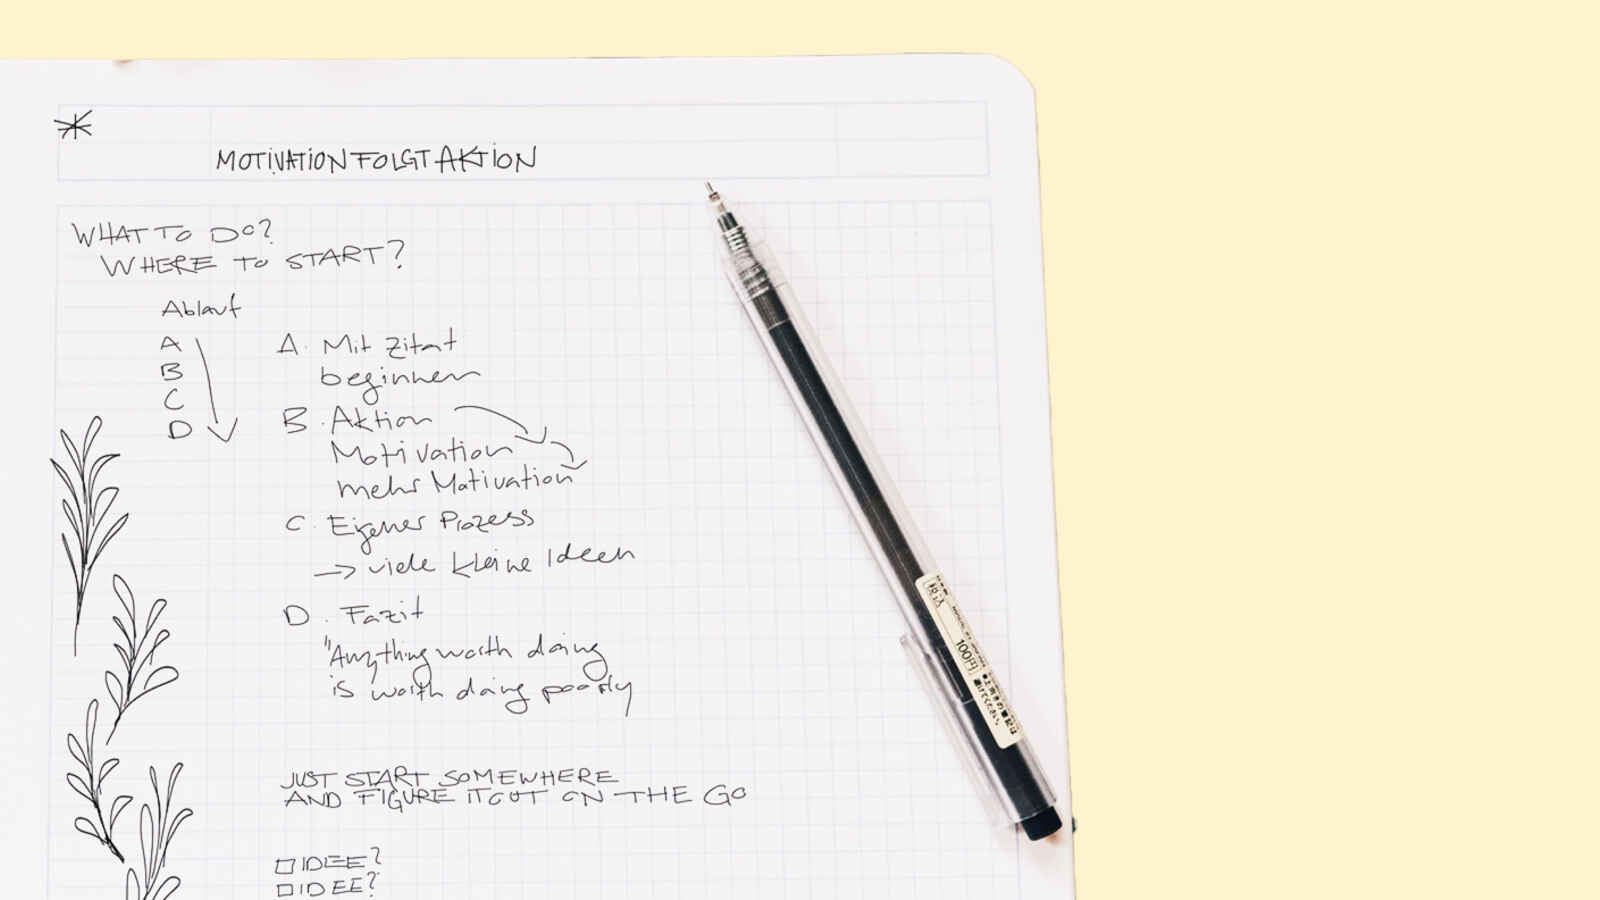 MOTIVATION FOLGT AKTION
WHAT TO DO?
WHERE TO START?
Ablauf
A
B
C
D
A. Mit Zitat
beginnen
B. Aktion
Motivation
mehr Motivation
C. Eigener Prozess
→ viele kleine Ideen
D. Fazit
"Anything worth doing
is worth doing poorly
JUST START SOMEWHERE
AND FIGURE IT OUT ON THE GO
□ IDEE?
□ IDEE?
100円